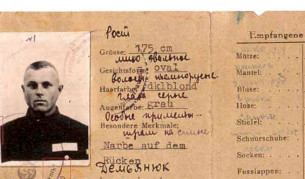 Рост
Grösse: 175 cm
лицо овальное
Gesichtsform: oval
волосы
Haarfarbe: dklblond
глаза серые
Augenfarbe: grau
Особые приметы
Besondere Merkmale:
шрам на спине
Narbe auf dem
Rücken
Демьянюк
Empfangene
Mütze:
Mantel:
Bluse:
Hose:
Stiefel:
Schnürschuhe:
Socken:
Fusslappen: